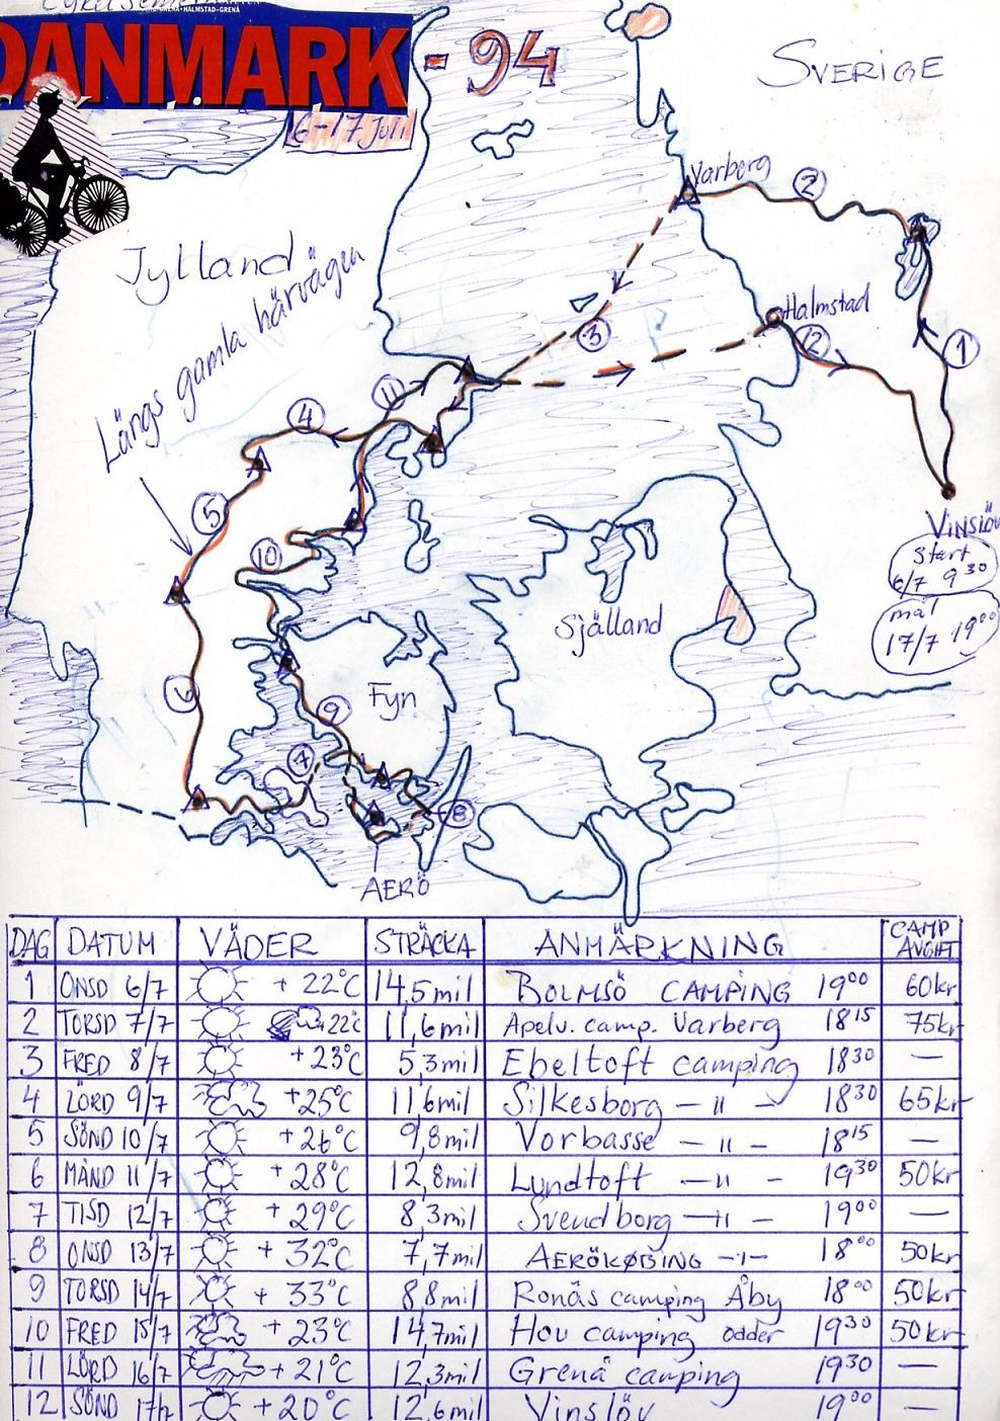 DANMARK - 94
HALMSTAD-GRENÅ
6-17 Juli
SVERIGE
Varberg
2
Jylland
Längs gamla härvägen
Halmstad
3
2
1
11
4
5
Vinslöv
Start
6/7 9 30
mål
17/7 19 00
10
Själland
6
Fyn
9
7
8
AERÖ
DAG DATUM VÄDER STRÄCKA ANMÄRKNING CAMP AVGIFT
1 ONSD 6/7 + 22°C 14,5 mil BOLMSÖ CAMPING 19 00 60kr
2 TORSD 7/7 +22°C 11,6 mil Apelv. camp. Varberg 18 15 75kr
3 FRED 8/7 +23°C 5,3 mil Ebeltoft camping 18 30 —
4 LÖRD 9/7 +25°C 11,6 mil Silkesborg — " — 18 30 65kr
5 SÖND 10/7 +26°C 9,8 mil Vorbasse — " — 18 15 —
6 MÅND 11/7 + 28°C 12,8 mil Lundtoft — " — 19 30 50kr
7 TISD 12/7 + 29°C 8,3 mil Svendborg — " — 19 00 —
8 ONSD 13/7 + 32°C 7,7 mil AERÖKØBING — " — 18 00 50kr
9 TORSD 14/7 + 33°C 8,8 mil Ronäs camping Åby 18 00 50kr
10 FRED 15/7 + 23°C 14,7 mil Hov camping odder 19 30 50kr
11 LÖRD 16/7 + 21°C 12,3 mil Grenå camping 19 30 —
12 SÖND 17/7 + 20°C 12,6 mil Vinslöv 19 00 —